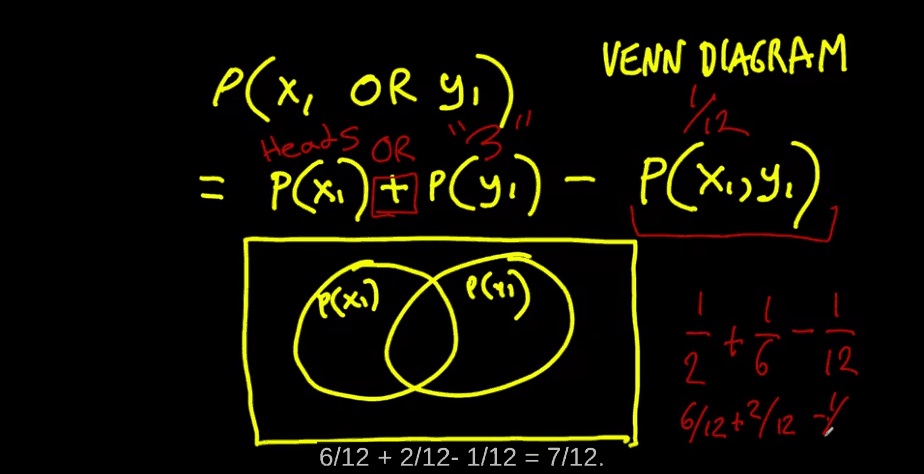 VENN DIAGRAM
P(x₁ OR y₁)
1/12
Heads OR "3"
= P(x₁) + P(y₁) - P(x₁, y₁)
P(x₁) P(y₁)
1/2 + 1/6 - 1/12
6/12 + 2/12 - 1/
6/12 + 2/12- 1/12 = 7/12.